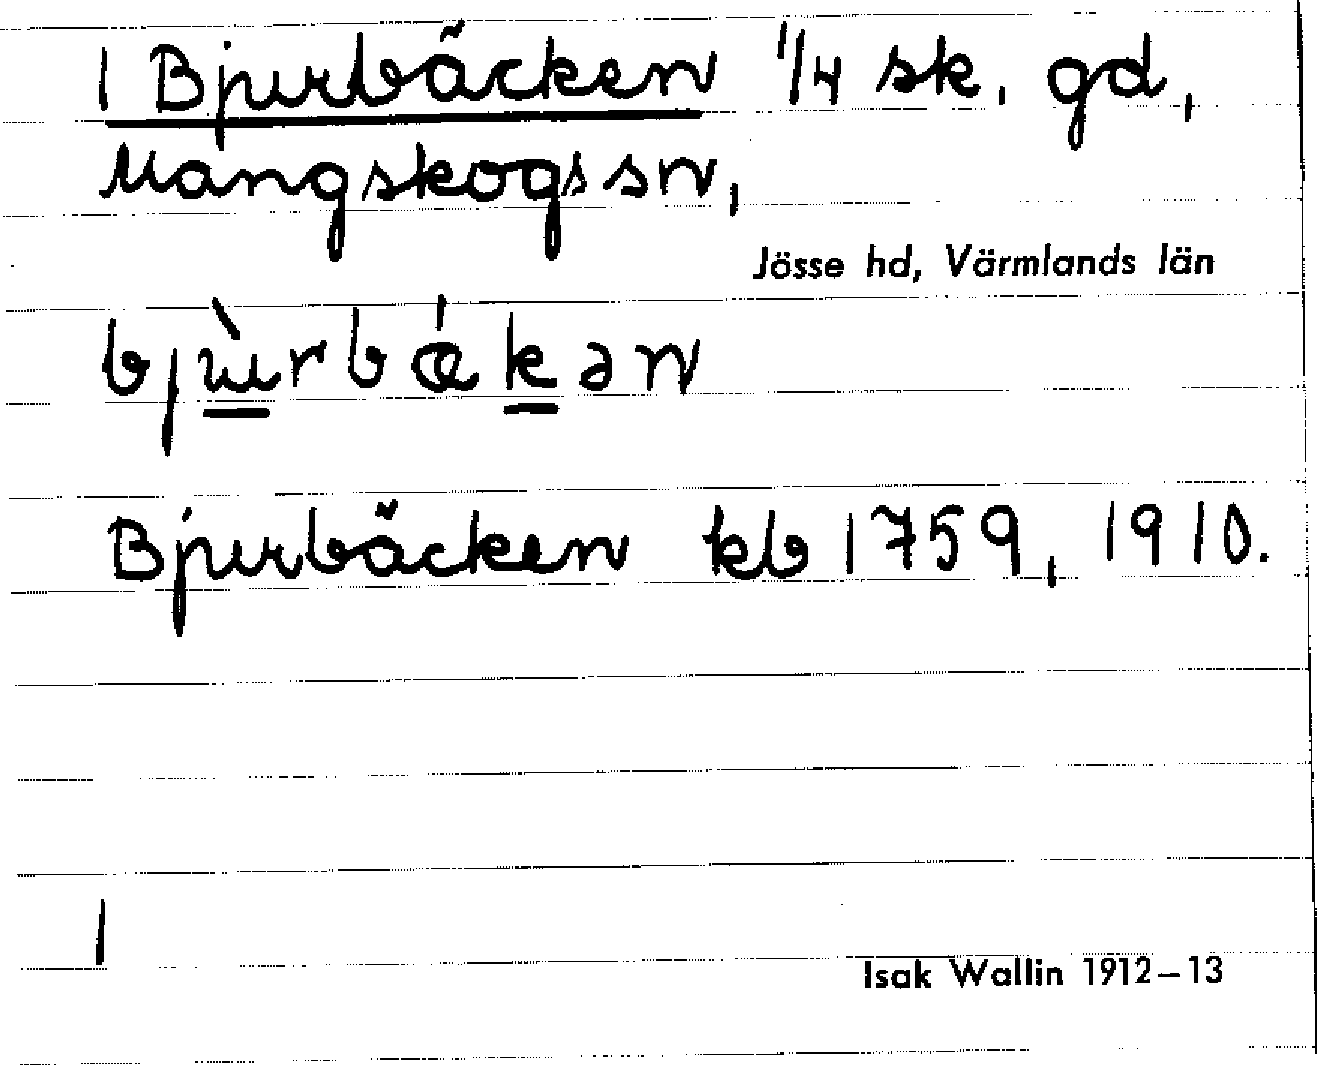 1 Bjurbäcken 1/4 sk. gd,
Mangskogs sn,
Jösse hd, Värmlands län
bjùrbákən
Bjurbäcken kb 1759, 1910.
1
Isak Wallin 1912–13